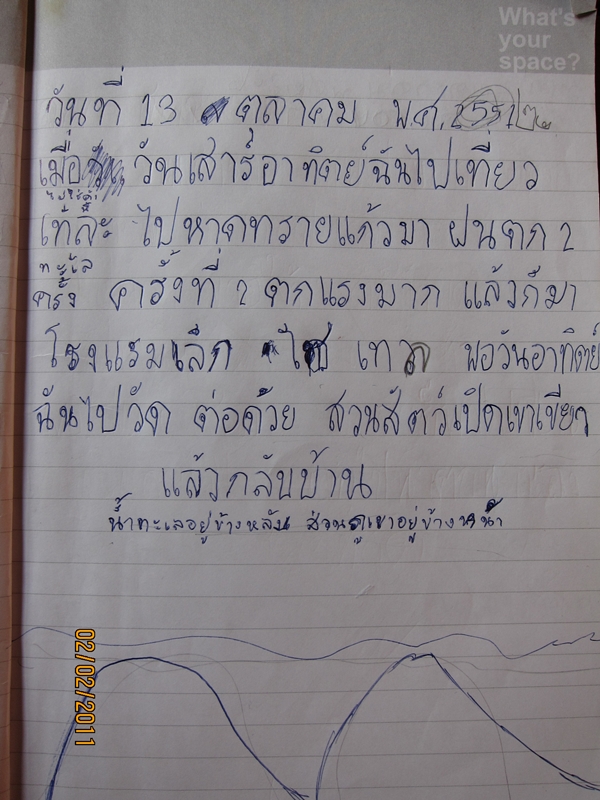 What's
your
space?
วันที่ 13 ตุลาคม พ.ศ. 255
เมื่อ วันเสาร์อาทิตย์ฉันไปเที่ยว
ไปหาดทรายแก้วมา ฝนตก 2
ทะเล
ครั้ง ครั้งที่ 2 ตกแรงมาก แล้วก็มา
โรงแรมเล็ก พอวันอาทิตย์
ฉันไปวัด ต่อด้วย สวนสัตว์เปิดเขาเขียว
แล้วกลับบ้าน
น้ำทะเลอยู่ข้างหลัง ส่วนภูเขาอยู่ข้างหน้า
02/02/2011